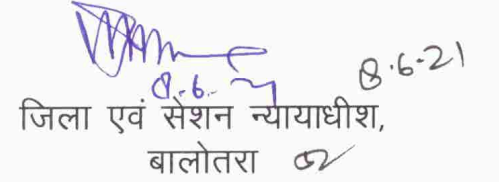 8.6.21
जिला एवं सेशन न्यायाधीश,
बालोतरा